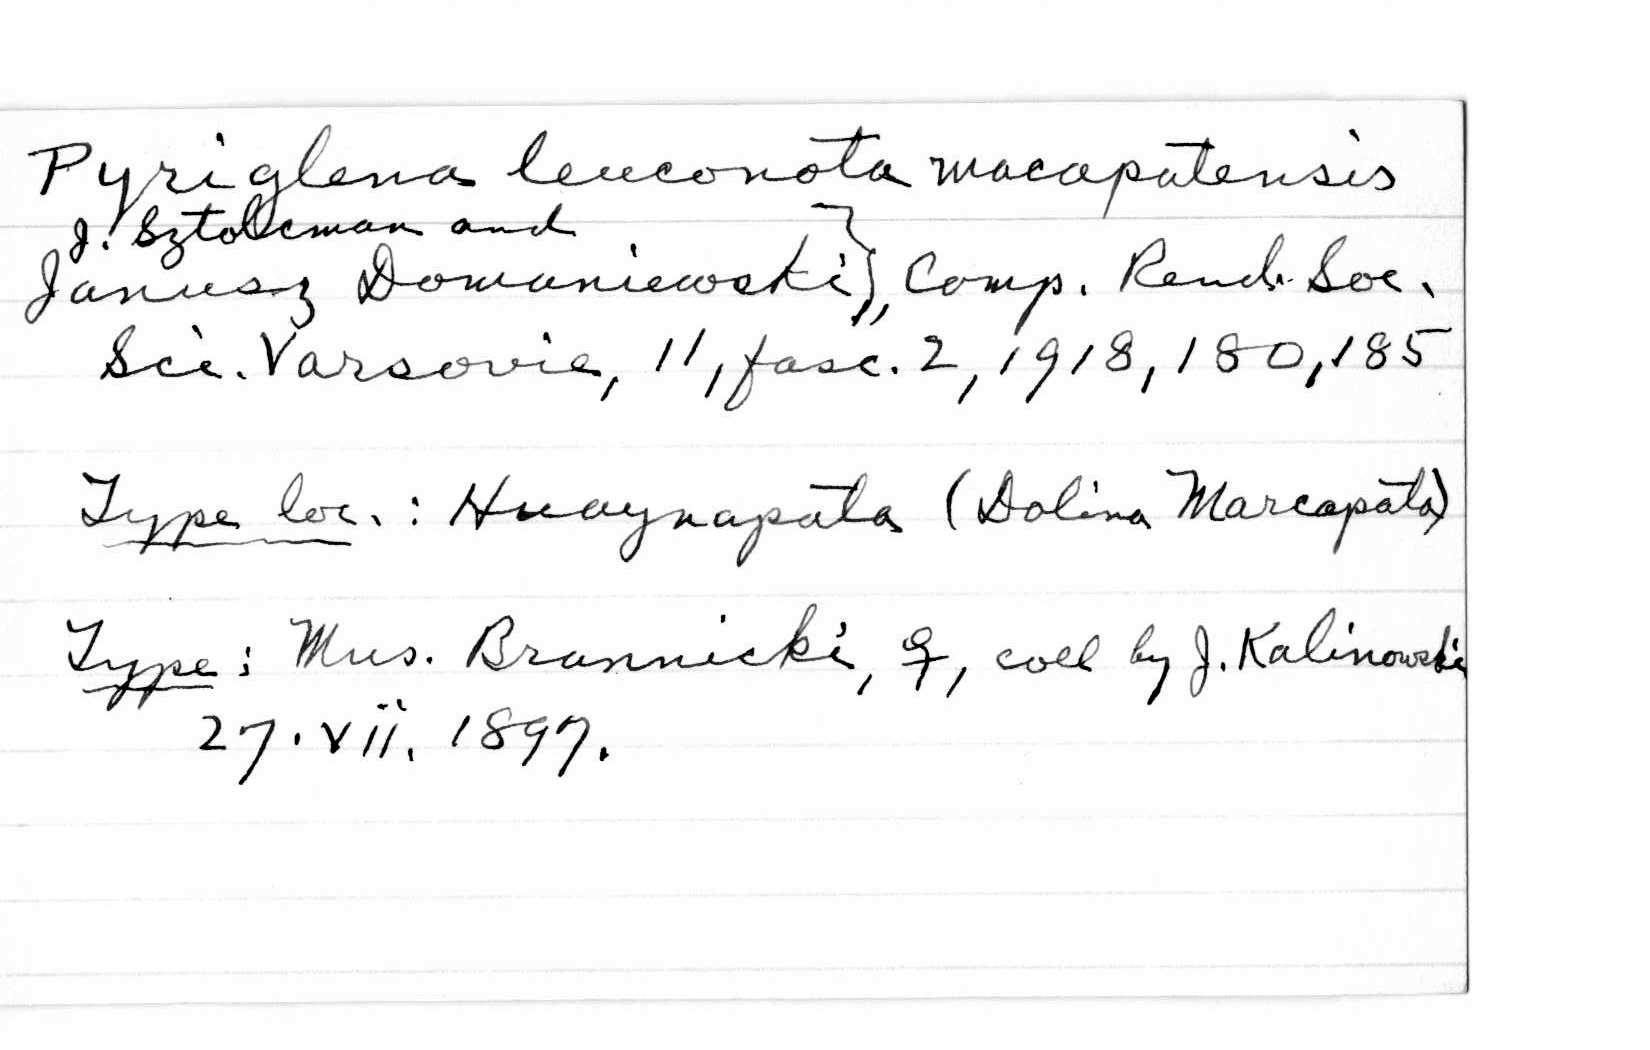 Pyriglena leuconota macapatensis
J. Sztolcman and
Janusz Domaniewski}, Comp. Rend. Soc.
Sci. Varsovie, 11, fasc. 2, 1918, 180, 185
Type loc. : Huaynapata (Dolina Marcapata)
Type : Mus. Brannicki, ♀, coll by J. Kalinowski
27. vii. 1897.